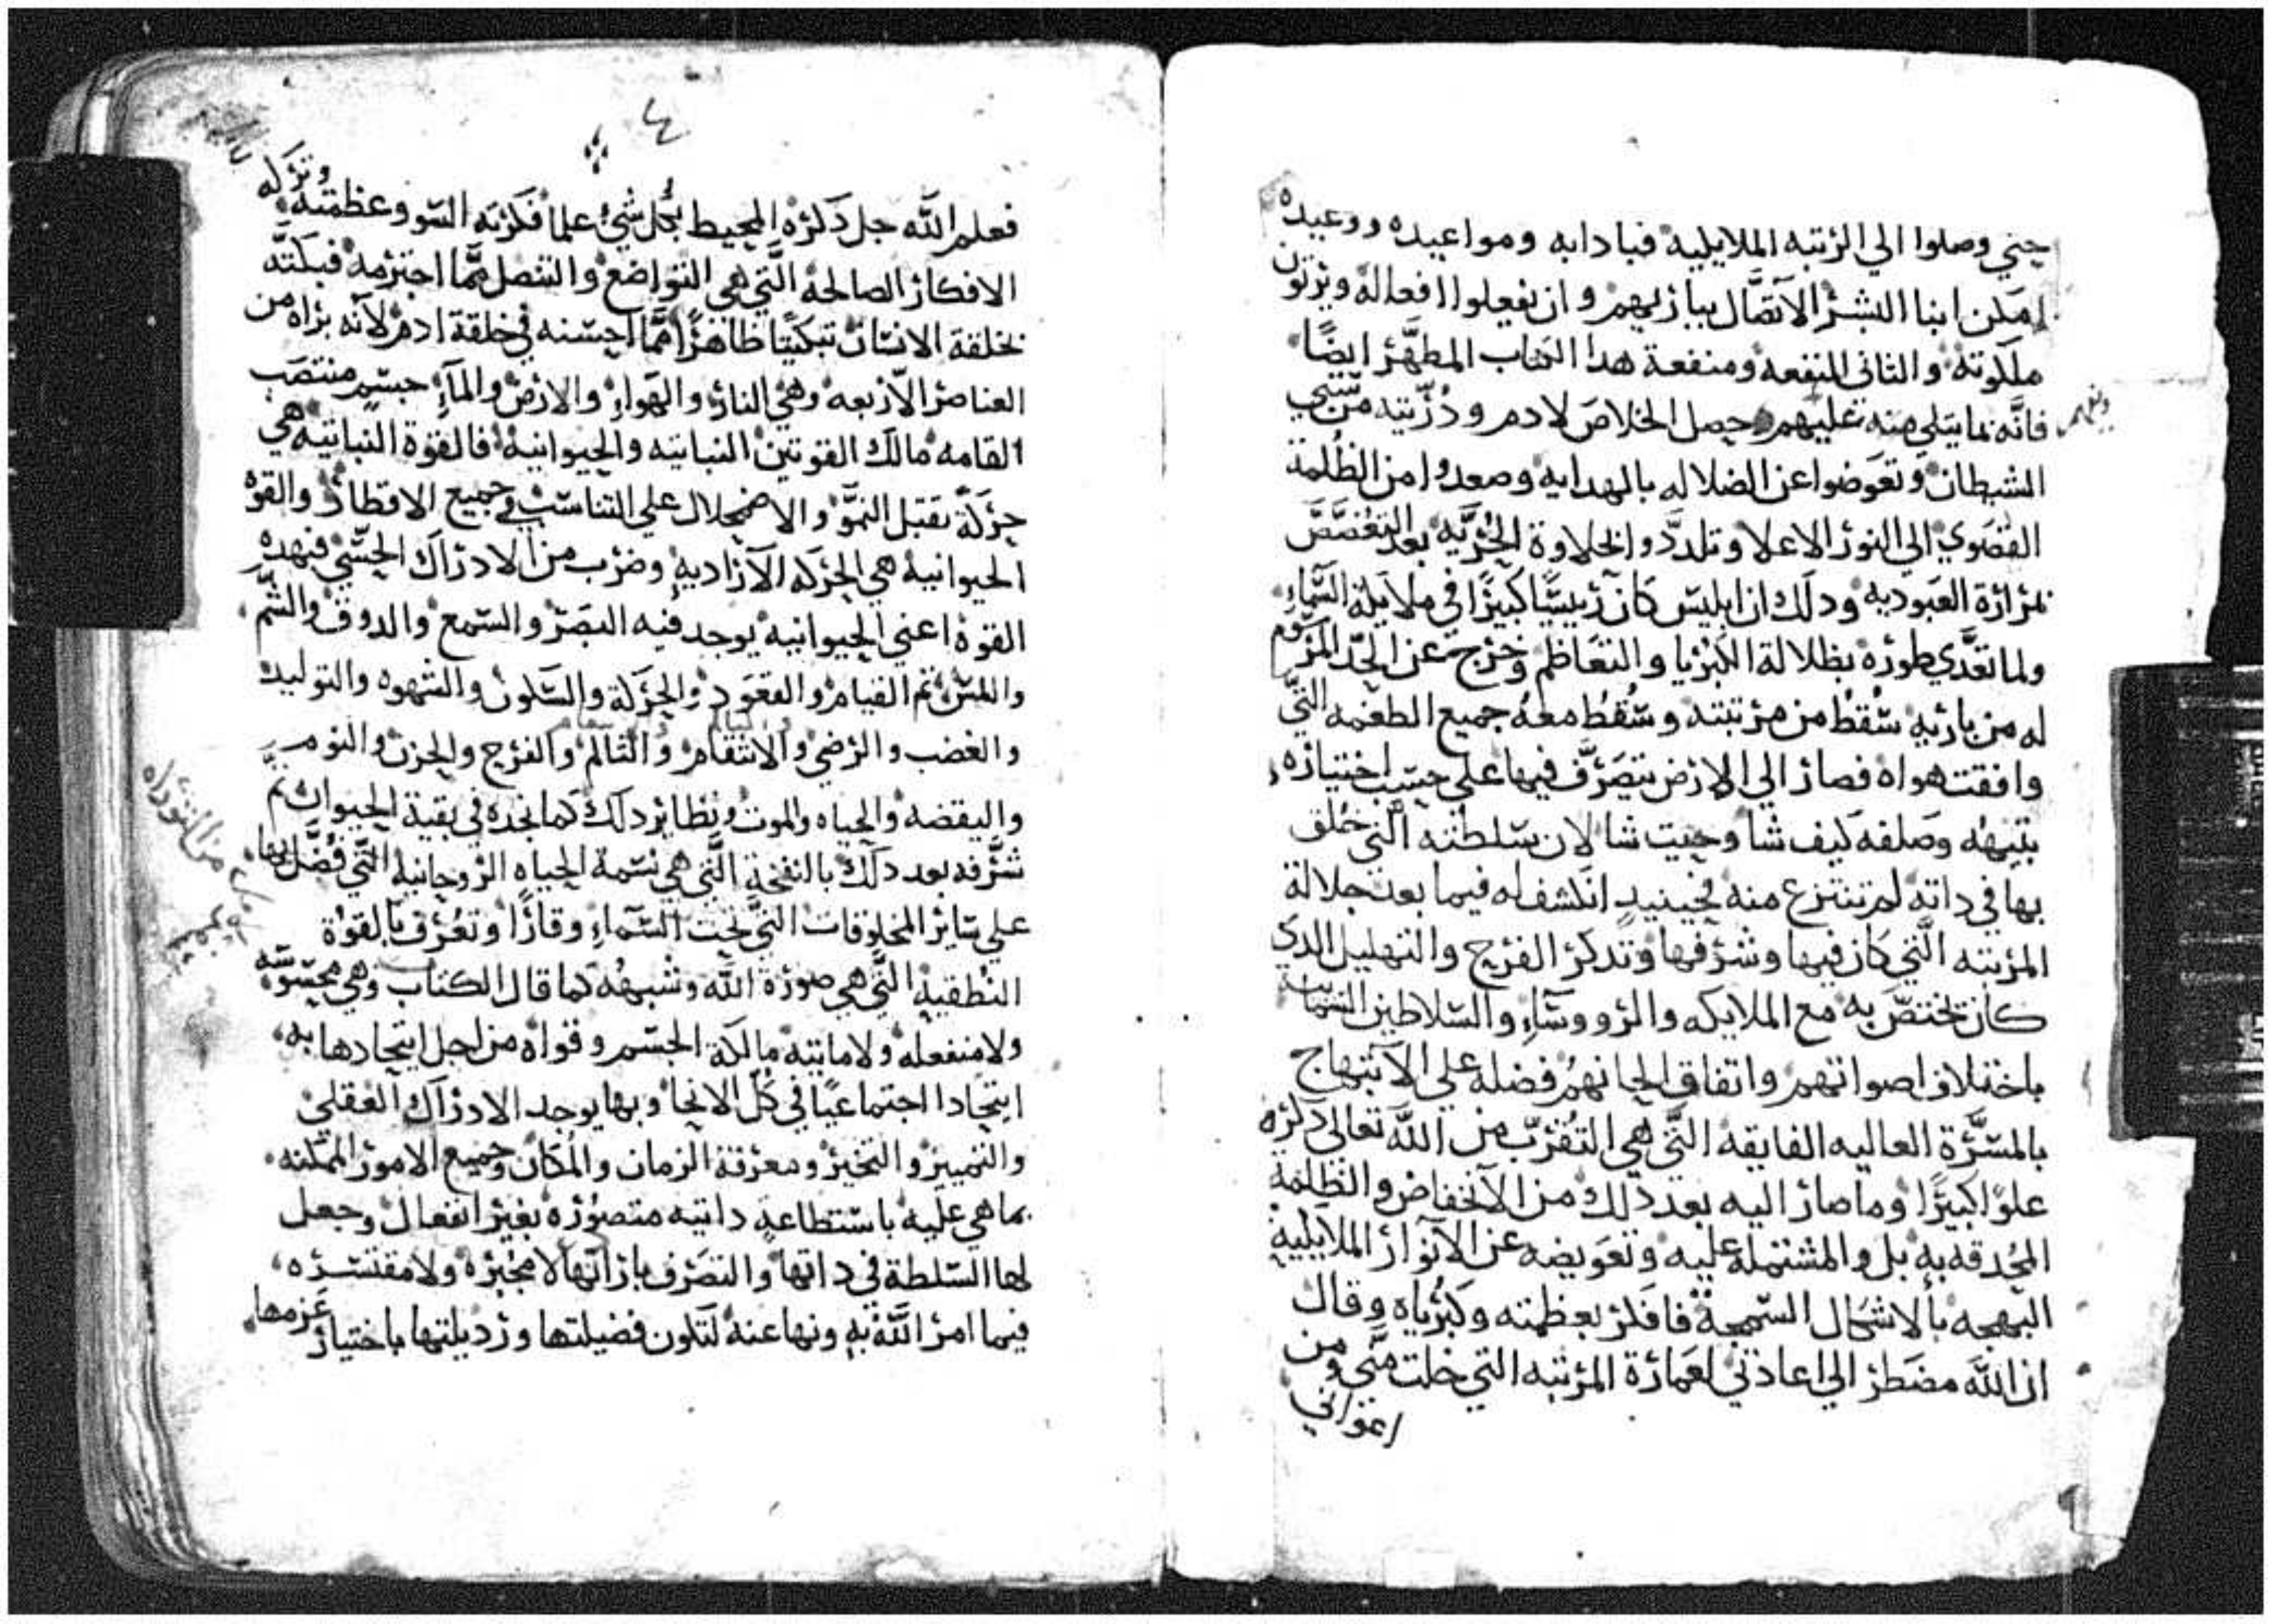 حتي وصلوا الي الرتبه الملايليه فبادابه ومواعيده ووعيده
امكن ابنا البشر الاتصال بباريهم وان يفعلوا افعاله ويرثون
ملكوته والثاني المنفعه ومنفعة هدا الكتاب المطهر ايضًا
فانَّه بما يتلي منه عليهم حصل الخلاص لادم وذرّيته من سبي
الشيطان وتعوضوا عن الضلاله بالهدايه وصعدوا من الظُلمة
القصوي الي النور الاعلا وتلدَّدوا بحلاوة الحُرّيَّه بعد التغصَّصَ
بمرارة العبوديه ودلك ان ابليس كان رييسًا كبيرًا في ملايكة السَّماءِ
ولما تعدَّي طوره بظلالة الكبريا والتعاظم وخرج عن الحدّ المرسوم
له من باريه سُقطْ من مرتبته وسُقطْ معهُ جميع الطغمه التي
وافقت هواه فصار الي الارض يتصَرَّف فيها علي حسب اختياره
بتيههُ وصلفه كيف شا وحيت شا لان سلطنته الَّتي خُلق
بها في داته لم تنتزع منه فحينيدٍ انكشف له فيما بعد جلالة
المرتبه الَّتي كان فيها وشرفها وتدكر الفرح والتهليل الدي
كان يختصّ به مع الملايكه والرووسَآءِ والسلاطين السمائيه
باختلاف اصواتهم واتفاق الحانهُم فضله علي الابتهاج
بالمسَرَّة العاليه الفايقه الَّتي هي التقُرّب من اللَّه تعالي دكره
علوًا كبيرًا وما صار اليه بعد دلك من الانخفاض والظلمة
المحُدقه به بل والمشتمله عليه وتعويضه عن الانوار الملايليه
البهجه بالاشكال السمجة فافكر بعظمته وكبرُياه وقال
ان اللَّه مضطر الي اعادتي لعمارة المرتبه التي خلت منّي ومن
اعواني
وفهم
٤
فعلم اللَّه جل دكره المحيط بكُل شيُ علمًا فكرته السو وعظمته وتركه
الافكار الصالحة الَّتي هي التواضع والتنصل ممَّا اجترمه فبكتَّه
بخلقة الانسان تبكيتًا ظاهرًا ممَّا احسنه في خلقة ادم لانَّه براه من
العناصر الاربعه وهي النار والهواءِ والارض والمآءِ جسم منتصب
القامه مالك القوتين النباتيه والحيوانيه فالقوة النباتيه هي
حركةً تقبل النموَّ والاضمحلال علي التناسب في جميع الاقطار والقوة
الحيوانيه هي الحركه الاراديه وضرب من الادراك الحسّي فبهده
القوة اعني الحيوانيه يوجد فيه البصر والسمع والدوق والشمّ
واللمس ثم القيام والقعود والحركة والسكون والشهوه والتوليد
والغضب والرضي والانتقام والتالم والفرح والحزن والنوم
واليقضه والحياه والموت ونظاير دلك كما نجده في بقية الحيوان ثمَّ
شرَّفه بعد دلك بالنفخةِ الَّتي هي نسمة الحياه الروحانيه الَّتي فُضّل بها
علي ساير المخلوقات الَّتي تحت السَّماءِ وقارًا وتعُرف بالقوُة
النُطقيه الَّتي هي صورة اللَّه وشبهُه كما قال الكتاب وهي محسوسَّه
ولا منفعله ولا مايته مالكة الجسم وقواه من اجل اتحادها به
اتحادا اجتماعيًا في كُل الانحا وبها يوجد الادراك العقلي
والتمييز والتخير ومعرفة الزمان والمكان وجميع الامور الممكنه
بما هي عليه باستطاعةٍ داتيه متصوُره بغير انفعال وجعل
لها السلطة في داتها والتصَرف بارآتها لا مجُبره ولا مقتسره
فيما امر اللَّه به ونها عنهُ لتكون فضيلتها ورديلتها باختيار عزمها
من التوراه